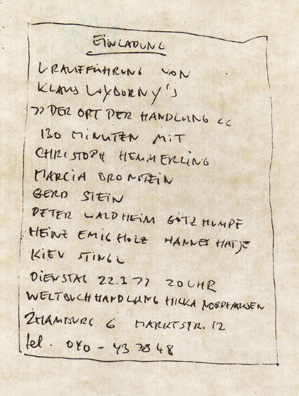 EINLADUNG
URAUFFÜHRUNG VON
KLAUS WYBORNY'S
>> DER ORT DER HANDLUNG <<
130 MINUTEN MIT
CHRISTOPH HEMMERLING
MARCIA BRONSTEIN
GERD STEIN
PETER WALDHEIM GÖTZ HUMPF
HEINZ EMIGHOLZ HANNES HATJE
KIEV STINGL
DIENSTAG 22.3.77 20 UHR
WELTBUCHHANDLUNG HILKA NORDHAUSEN
2 HAMBURG 6 MARKTSTR. 12
tel. 040 - 43 78 48